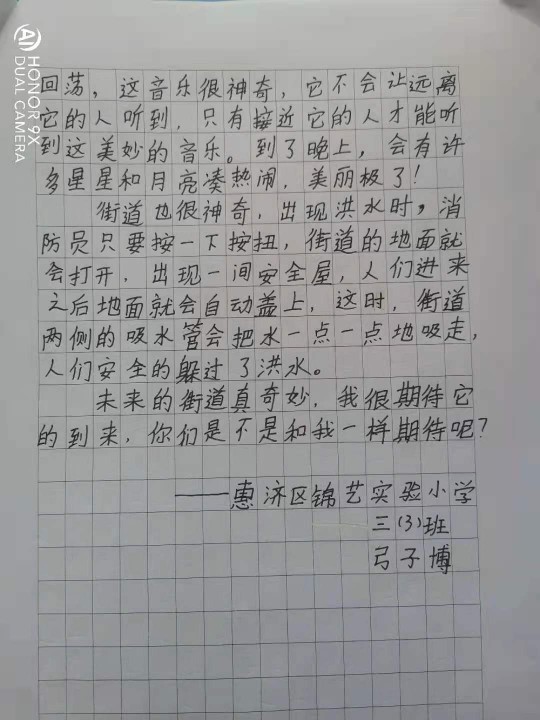 HONOR 9X
DUAL CAMERA
回荡，这音乐很神奇，它不会让远离
它的人听到，只有接近它的人才能听
到这美妙的音乐。到了晚上，会有许
多星星和月亮凑热闹，美丽极了！
街道也很神奇，出现洪水时，消
防员只要按一下按扭，街道的地面就
会打开，出现一间安全屋，人们进来
之后地面就会自动盖上，这时，街道
两侧的吸水管会把水一点一点地吸走，
人们安全的躲过了洪水。
未来的街道真奇妙，我很期待它
的到来，你们是不是和我一样期待呢？
——惠济区锦艺实验小学
三(3)班
弓子博